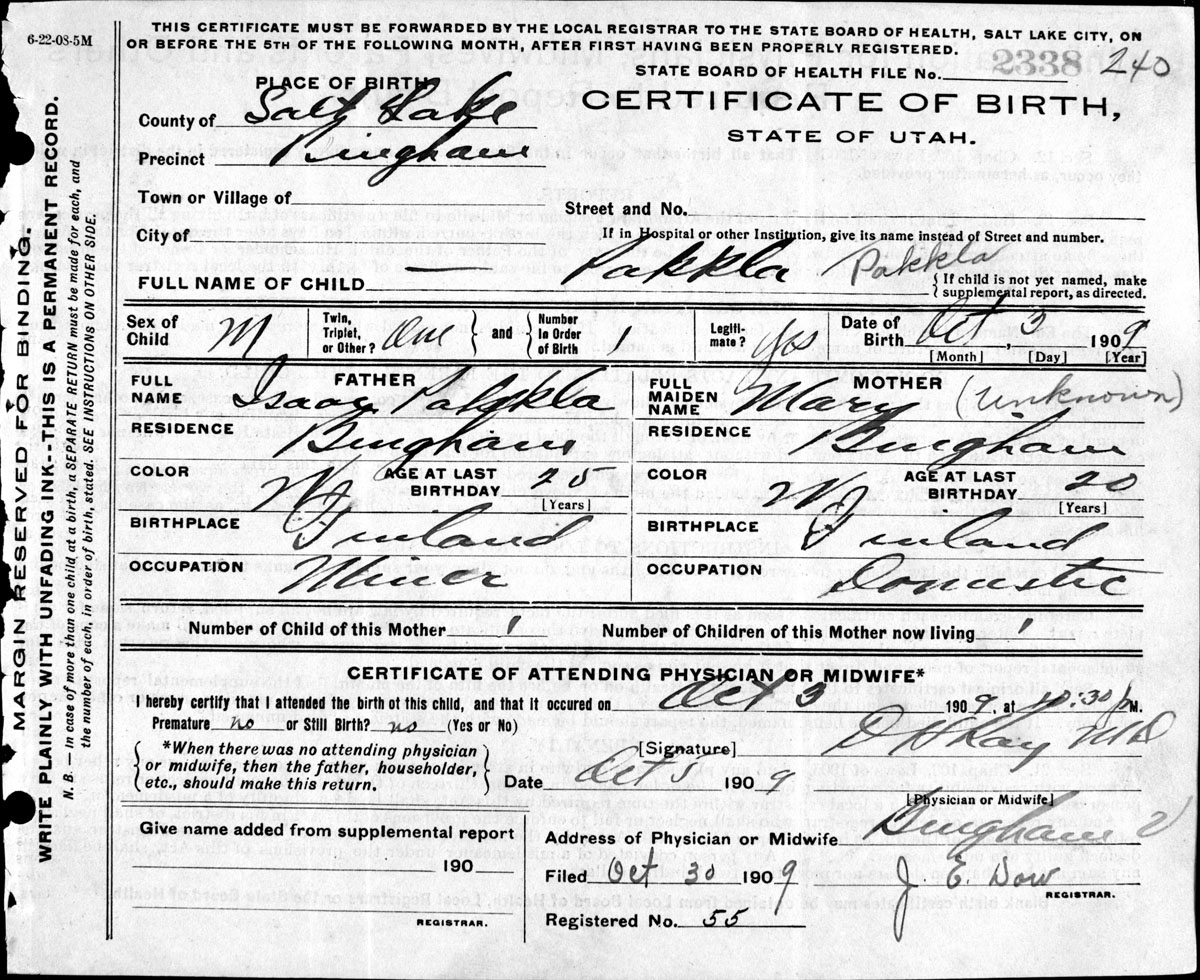 6-22-08-5M
THIS CERTIFICATE MUST BE FORWARDED BY THE LOCAL REGISTRAR TO THE STATE BOARD OF HEALTH, SALT LAKE CITY, ON
OR BEFORE THE 5TH OF THE FOLLOWING MONTH, AFTER FIRST HAVING BEEN PROPERLY REGISTERED.
STATE BOARD OF HEALTH FILE No. 2338 240
PLACE OF BIRTH
CERTIFICATE OF BIRTH,
STATE OF UTAH.
County of Salt Lake
Precinct Bingham
Town or Village of
Street and No.
City of
If in Hospital or other Institution, give its name instead of Street and number.
FULL NAME OF CHILD — Pakkla Pakkla
{If child is not yet named, make
supplemental report, as directed.
Sex of Child M
Twin, Triplet, or Other? One } and { Number in Order of Birth 1
Legitimate? Yes
Date of Birth Oct, 3 1909
[Month] [Day] [Year]
FATHER
FULL NAME Isaac Pakkla
RESIDENCE Bingham
COLOR W
AGE AT LAST BIRTHDAY 25
[Years]
BIRTHPLACE Finland
OCCUPATION Miner
MOTHER
FULL MAIDEN NAME Mary (Unknown)
RESIDENCE Bingham
COLOR W
AGE AT LAST BIRTHDAY 20
[Years]
BIRTHPLACE Finland
OCCUPATION Domestic
Number of Child of this Mother 1 Number of Children of this Mother now living 1
CERTIFICATE OF ATTENDING PHYSICIAN OR MIDWIFE*
I hereby certify that I attended the birth of this child, and that it occured on Oct 3 1909, at 10:30 P M.
Premature no or Still Birth? no (Yes or No)
*When there was no attending physician
or midwife, then the father, householder,
etc., should make this return.
[Signature] Kay MD
Date Oct 5 1909
[Physician or Midwife]
Give name added from supplemental report
190
REGISTRAR.
Address of Physician or Midwife Bingham
Filed Oct 30 1909 J. E. Dow
REGISTRAR.
Registered No. 55
MARGIN RESERVED FOR BINDING.
WRITE PLAINLY WITH UNFADING INK--THIS IS A PERMANENT RECORD.
N. B. In case of more than one child at a birth, a SEPARATE RETURN must be made for each, and
the number of each, in order of birth, stated. SEE INSTRUCTIONS ON OTHER SIDE.